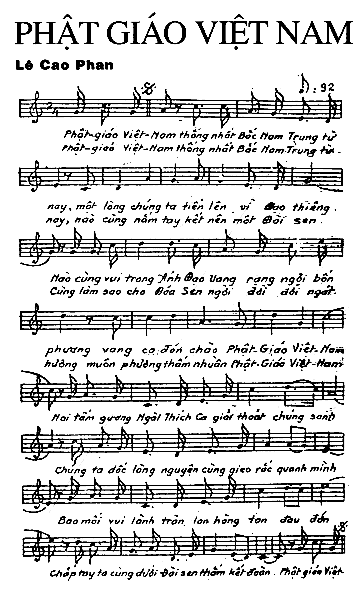 PHẬT GIÁO VIỆT NAM
Lê Cao Phan
♪ = 92
Phật-giáo Việt-Nam thống nhất Bắc Nam Trung từ
Phật-giáo Việt-Nam thống nhất Bắc Nam-Trung từ-
nay, một lòng chúng ta tiến lên vì Đạo thiêng.
nay, nào cùng nắm tay kết nên một Đài sen.
Nào cùng vui trong Ánh Đạo Vàng rạng ngời bốn
Cùng làm sao cho Đóa Sen ngời đời đời ngát
phương vang ca đón chào Phật-Giáo Việt-Nam
hương muôn phương thấm nhuần Phật-Giáo Việt-Nam
Noi tấm gương Ngài Thích Ca giải thoát chúng sanh
Chúng ta dốc lòng nguyện cùng gieo rắc quanh mình
Bao mối vui lành tràn lan hòng tan đau đớn
Chắp tay ta cùng dưới Đài sen thắm kết đoàn. Phật giáo Việt-